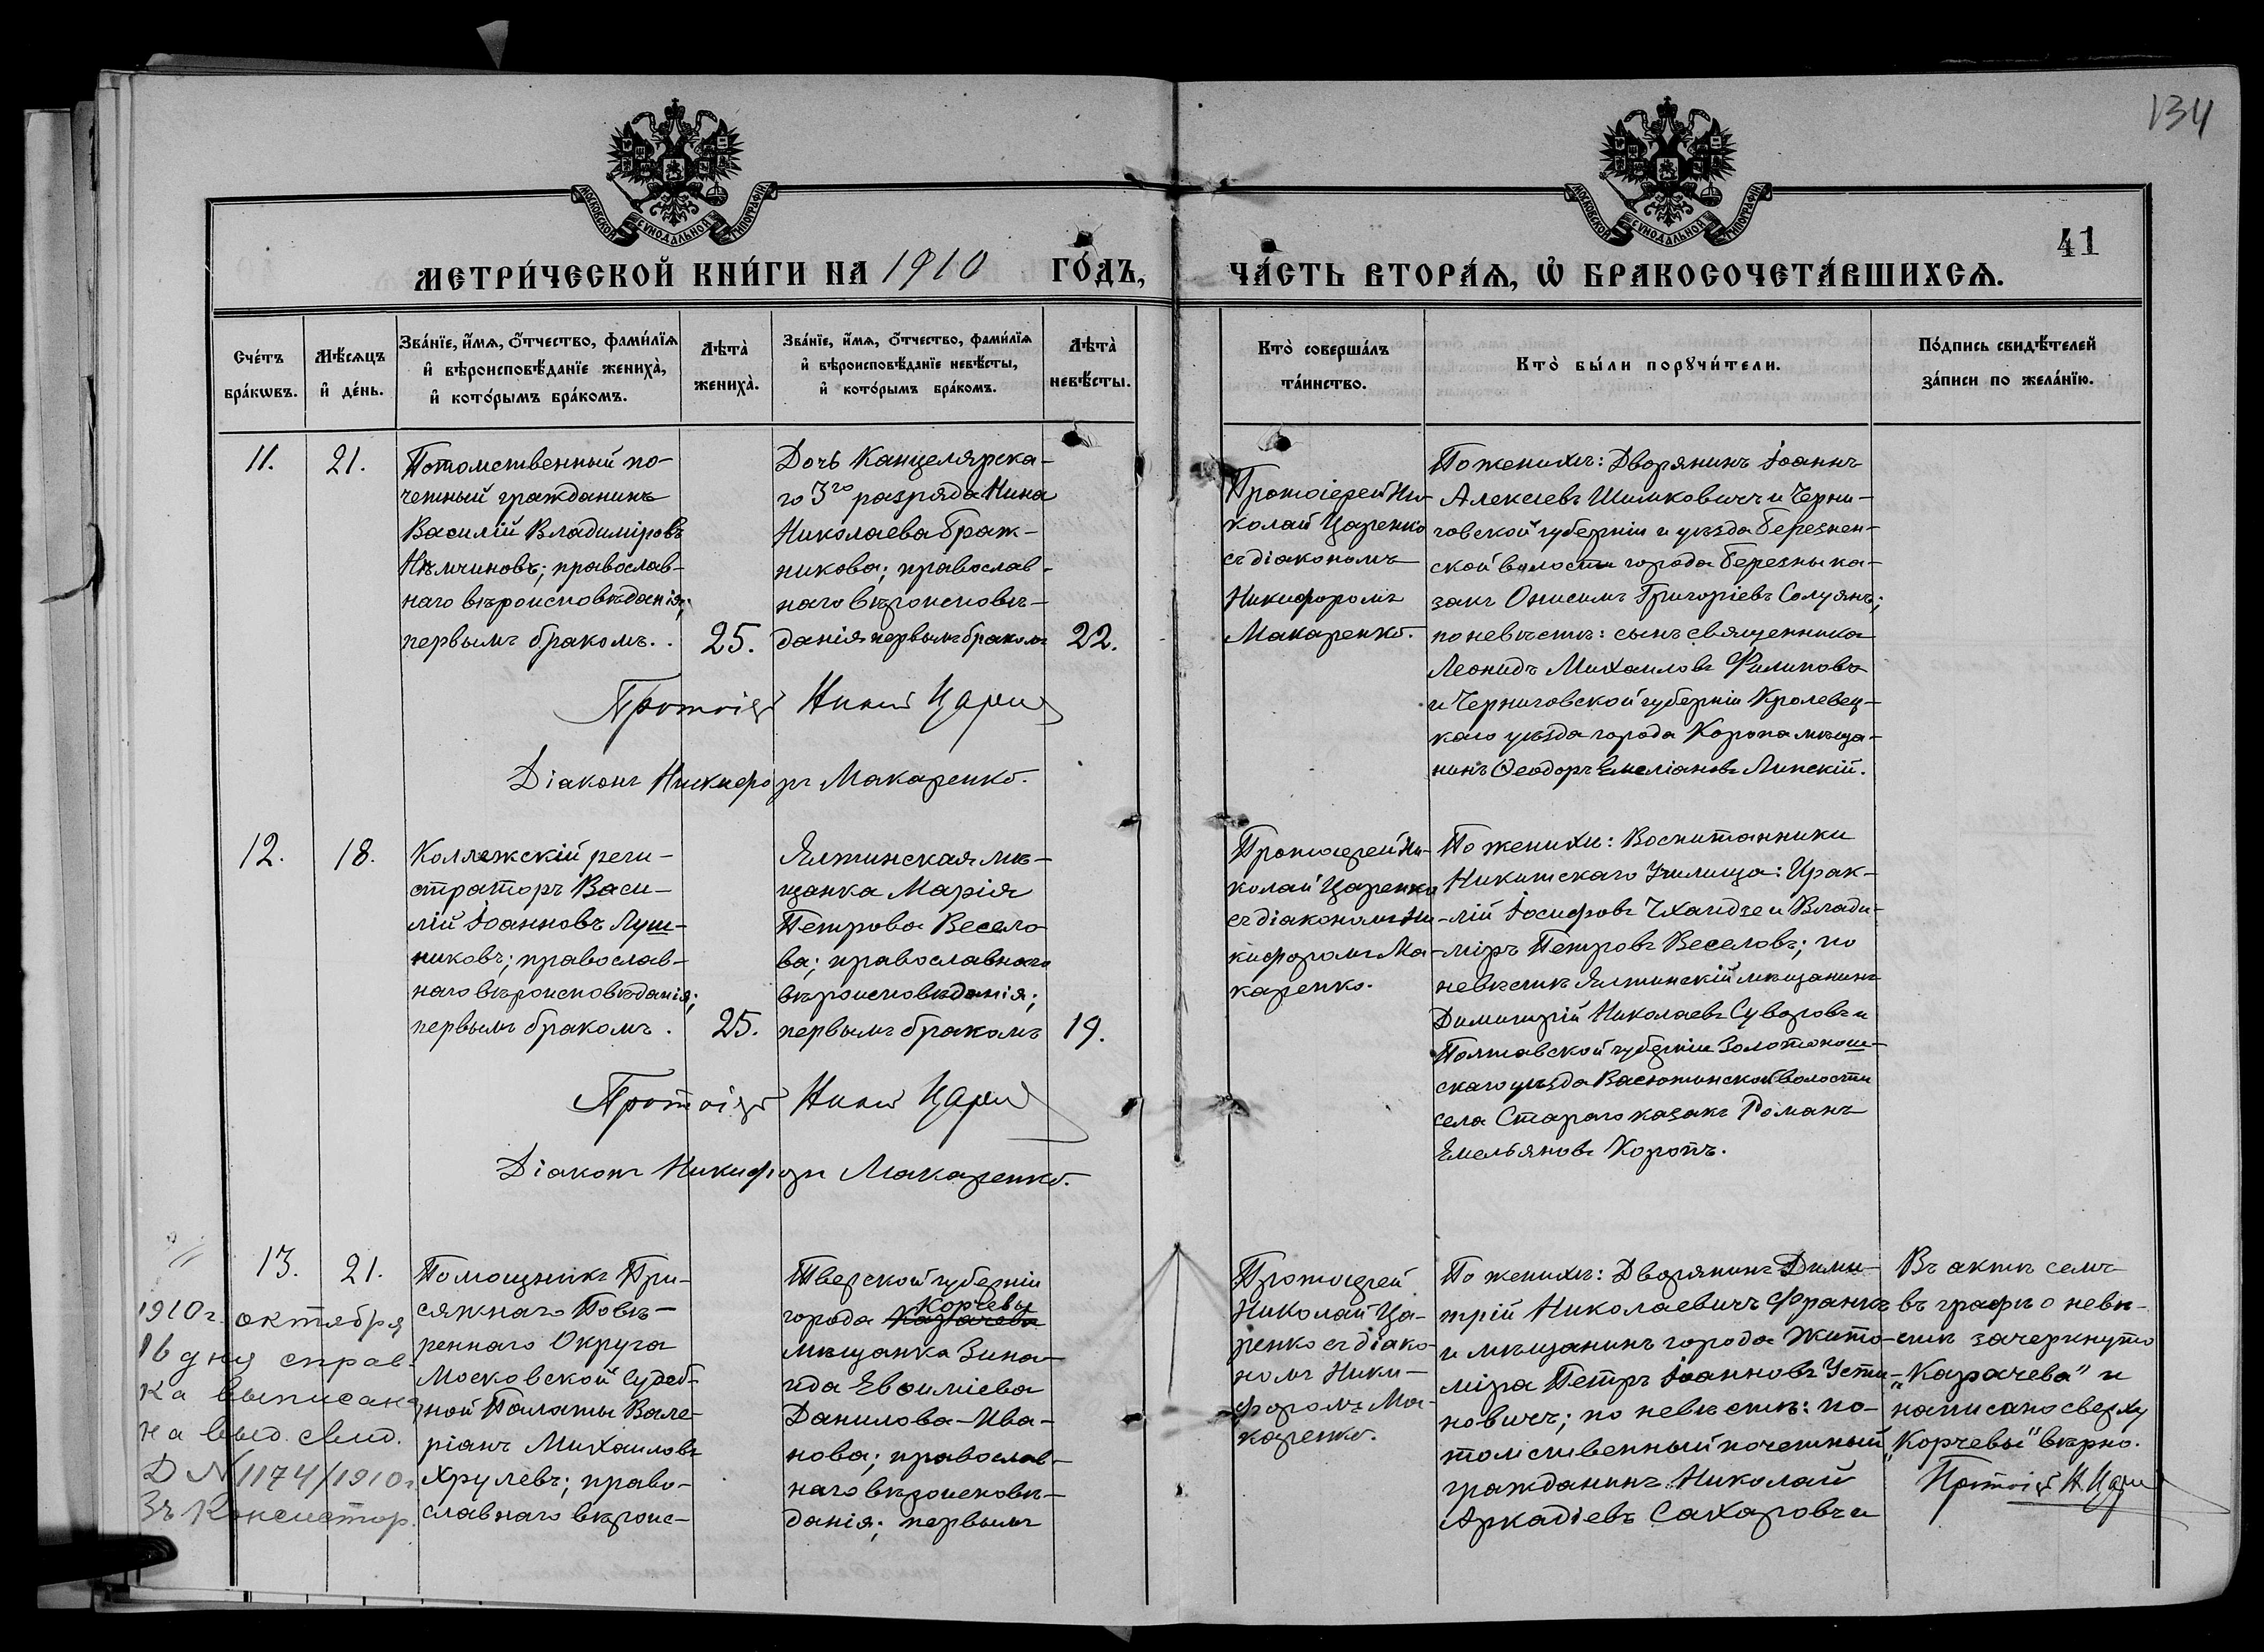 134
МОСКОВСКОЙ СѴНОДАЛЬНОЙ ТИПОГРАФІИ
МОСКОВСКОЙ СѴНОДАЛЬНОЙ ТИПОГРАФІИ
41
МЕТРИ́ЧЕСКОЙ КНИ́ГИ НА 1910 ГО́ДЪ,
ЧА́СТЬ ВТОРА́Ѧ, Ѡ҆ БРАКОСОЧЕТА́ВШИХСѦ.
Сче́тъ
бра́кѡвъ.
Мѣ́сѧцъ
и҆ де́нь.
Зва́нїе, и҆́мѧ, ѻ҆́тчество, фами́лїѧ
и҆ вѣроисповѣ́данїе жениха̀,
и҆ кото́рымъ бра́комъ.
Лѣта̀
жениха̀.
Зва́нїе, и҆́мѧ, ѻ҆́тчество, фами́лїѧ
и҆ вѣроисповѣ́данїе невѣ́сты,
и҆ кото́рымъ бра́комъ.
Лѣта̀
невѣ́сты.
Кто̀ соверша́лъ
та́инство.
Кто̀ бы́ли порꙋчи́тели.
По́дпись свидѣ́телей
за́писи по жела́нїю.
11.
21.
Потомственный по-
четный гражданинъ
Василій Владиміровъ
Нѣмчиновъ; православ-
наго вѣроисповѣданія;
первымъ бракомъ.
25.
Дочь Канцелярска-
го 3го разряда Нина
Николаева Браж-
никова; православ-
наго вѣроисповѣ-
данія первымъ бракомъ
22.
Протоіерей Ни-
колай Царенко
съ діакономъ
Никифоромъ
Макаренко.
По женихѣ: Дворянинъ Іоаннъ
Алексіевъ Шимковичъ и Черни-
говской губерніи и уѣзда Березнен-
ской волости города Березны ка-
закъ Онисимъ Григоріевъ Солуянъ;
по невѣстѣ: сынъ священника
Леонидъ Михаиловъ Филиповъ
и Черниговской губерніи Кролевец-
каго уѣзда города Коропа мѣща-
нинъ Ѳеодоръ Емеліановъ Липскій.
Діаконъ Никифоръ Макаренко.
12.
18.
Коллежскій реги-
страторъ Васи-
лій Іоанновъ Луш-
никовъ; православ-
наго вѣроисповѣданія;
первымъ бракомъ.
25.
Ялтинская мѣ-
щанка Марія
Петрова Весело
ва; православнаго
вѣроисповѣданія;
первымъ бракомъ
19.
Протоіерей Ни-
колай Царенко
съ діакономъ Ни-
кифоромъ Ма-
каренко.
По женихѣ: Воспитанники
Никитскаго Училища: Ирак-
лій Іосифовъ Чхаидзе и Влади-
міръ Петровъ Веселовъ; по
невѣстѣ Ялтинскій мѣщанинъ
Димитрій Николаевъ Суворовъ и
Полтавской губерніи Золотонош-
скаго уѣзда Васютинской волости
села Стараго казакъ Романъ
Емельяновъ Коропъ.
Діаконъ Никифоръ Макаренко.
13.
21.
1910 г. октября
16 дня справ-
ка выписана
на выд. свид.
Помощникъ При-
сяжнаго Повѣ-
реннаго Округа
Московской Судеб-
ной Палаты Вале-
ріанъ Михаиловъ
Хрулевъ; право-
славнаго вѣроис-
Тверской губерніи
Корчевы
города Карачева
мѣщанка Зина-
ида Евѳиміева
Данилова-Ива-
нова; православ-
наго вѣроисповѣ-
данія; первымъ
Протоіерей
Николай Ца-
ренко съ діако-
номъ Ники-
форомъ Ма-
каренко.
По женихѣ: Дворянинъ Дими-
трій Николаевичъ Франкъ
и мѣщанинъ города Жито-
міра Петръ Іоанновъ Усти-
новичъ; по невѣстѣ: по-
томственный почетный
гражданинъ Николай
Аркадіевъ Сахаровъ и
Въ актѣ семъ
въ графѣ о невѣ-
стѣ зачеркнуто
„Карачева" и
написано сверху
„Корчевы" вѣрно.